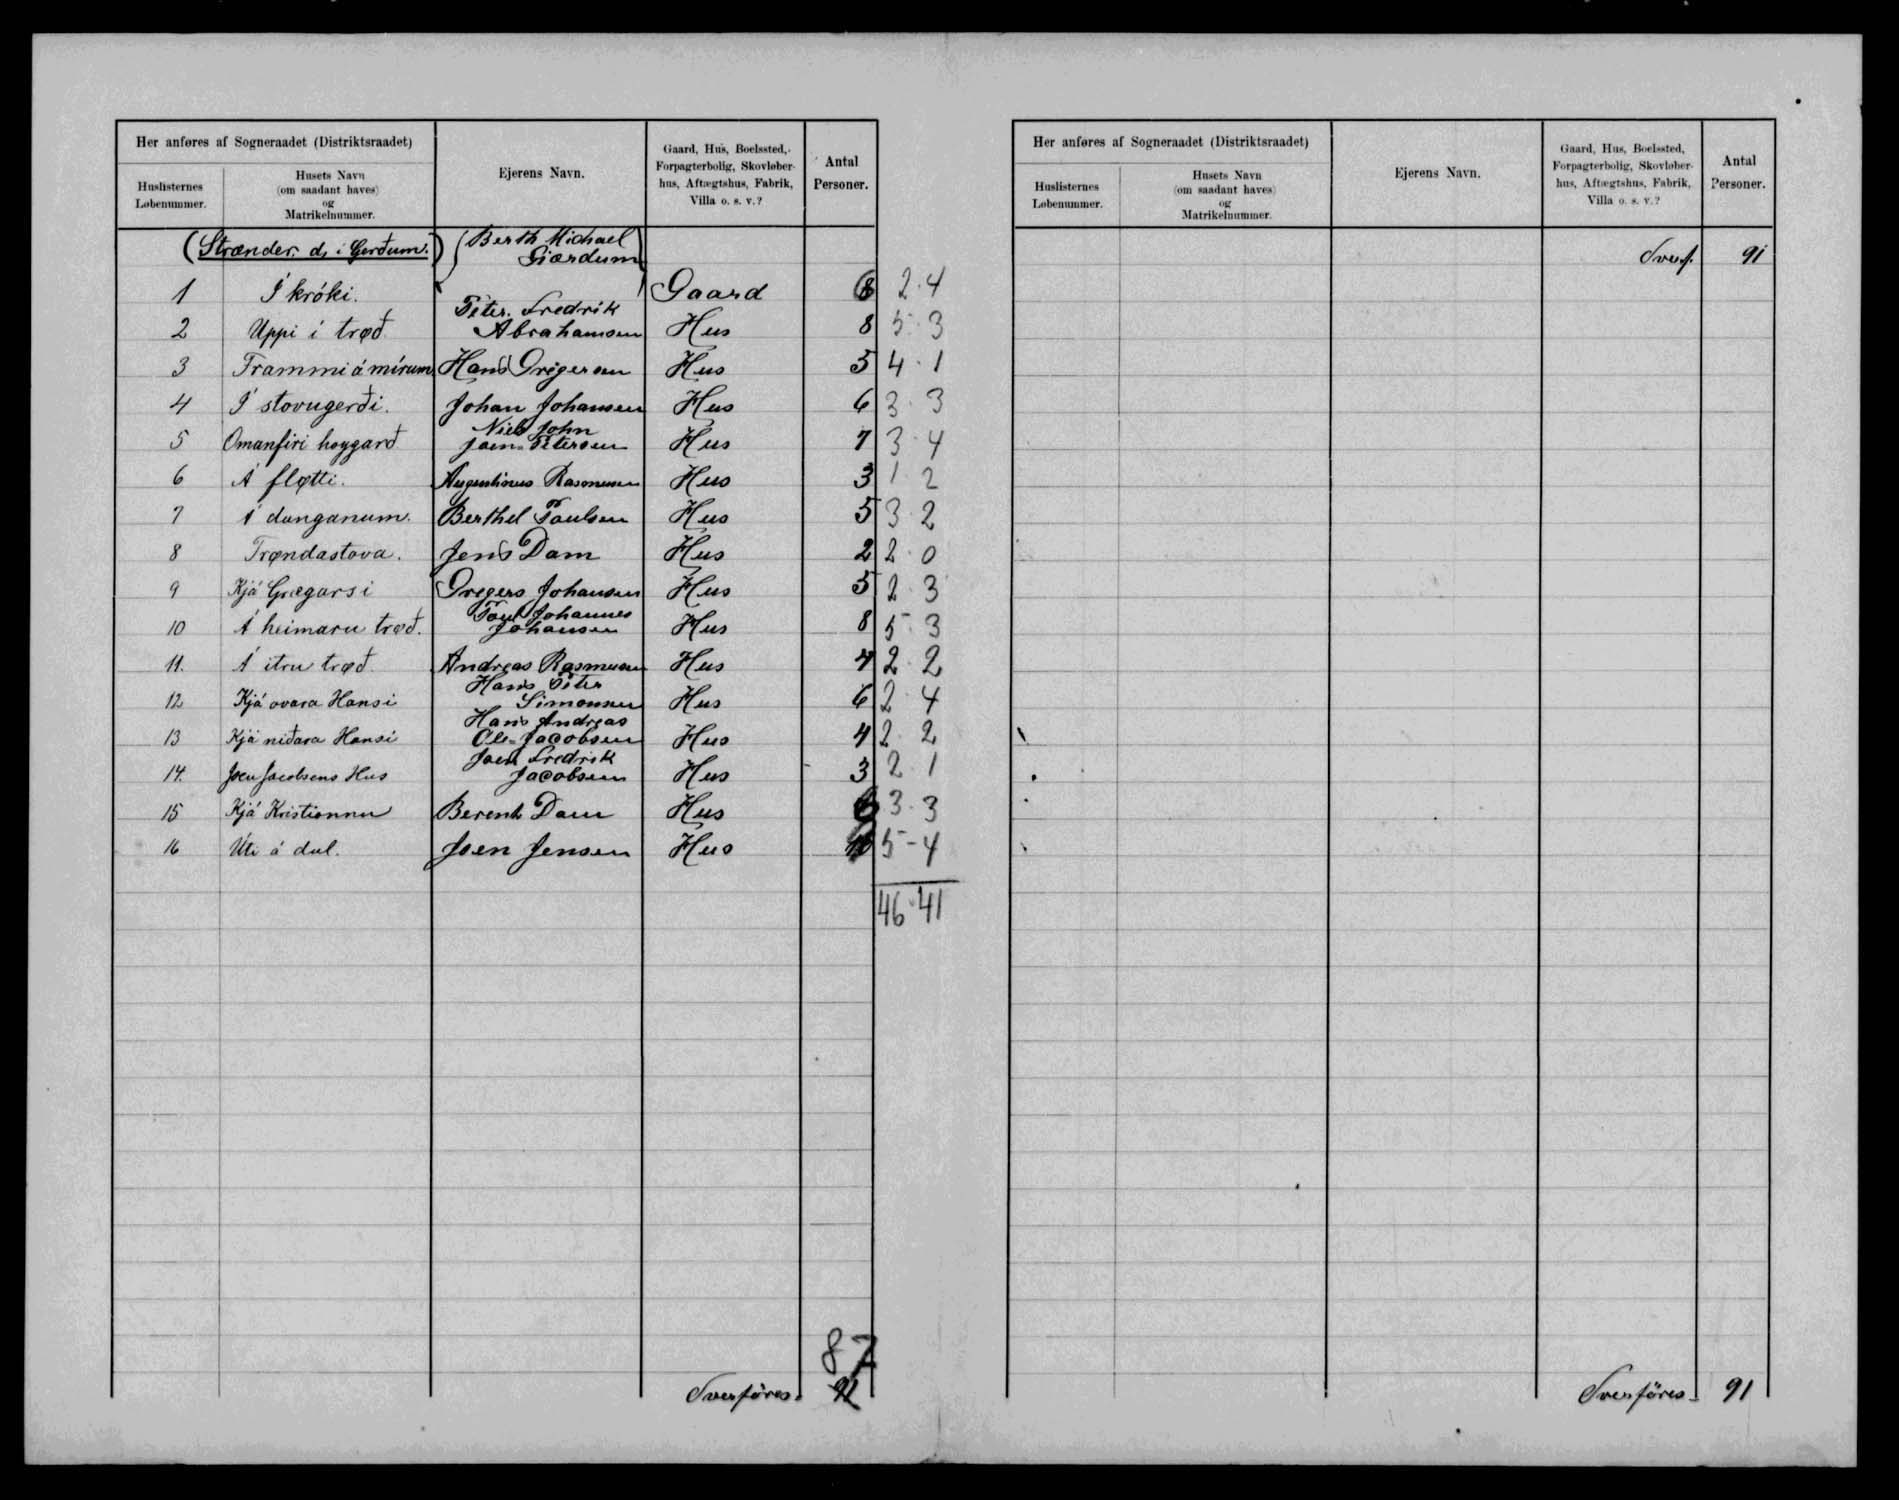 Her anføres af Sogneraadet (Distriktsraadet)
Huslisternes Løbenummer.
Husets Navn (om saadant haves) og Matrikelnummer.
Ejerens Navn.
Gaard, Hus, Boelssted, Forpagterbolig, Skovløberhus, Aftægtshus, Fabrik, Villa o. s. v.?
Antal Personer.
(Strænder. d, i Gerðum.) (Berth Michael Giærdum)
1 Í króki. Gaard 6 2 · 4
2 Uppi i trøð. Peter Fredrik Abrahamsen Hus 8 5 · 3
3 Frammi á mírum Hans Grégersen Hus 5 4 · 1
4 Í stovugerði. Johan Johansen Hus 6 3 · 3
5 Omanfiri hoygarð Niels John Joen Petersen Hus 7 3 · 4
6 Á fløtti. Augustinus Rasmussen Hus 3 1 · 2
7 Á dunganum. Berthel Poulsen Hus 5 3 · 2
8 Trøndastova. Jens Dam Hus 2 2 · 0
9 Kjá Grægarsi Gregers Johansen Hus 5 2 · 3
10 Á heimaru trøð. Poul Johannes Johansen Hus 8 5 · 3
11. Á itru trøð. Andreas Rasmussen Hus 4 2 · 2
12 Kjá ovara Hansi Hans Peter Simonsen Hus 6 2 · 4
13 Kjá niðara Hansi Hans Andreas Ole Jacobsen Hus 4 2 · 2
14. Joen Jacobsens Hus Joen Fredrik Jacobsen Hus 3 2 · 1
15 Kjá Kristionnu Berent Dam Hus 6 3 · 3
16 Úti á dul. Joen Jensen Hus 5 - 4
46 · 41
87
Overføres 91
Her anføres af Sogneraadet (Distriktsraadet)
Huslisternes Løbenummer.
Husets Navn (om saadant haves) og Matrikelnummer.
Ejerens Navn.
Gaard, Hus, Boelssted, Forpagterbolig, Skovløberhus, Aftægtshus, Fabrik, Villa o. s. v.?
Antal Personer.
Overf. 91
Overføres 91